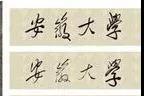 安徽大學
安徽大學